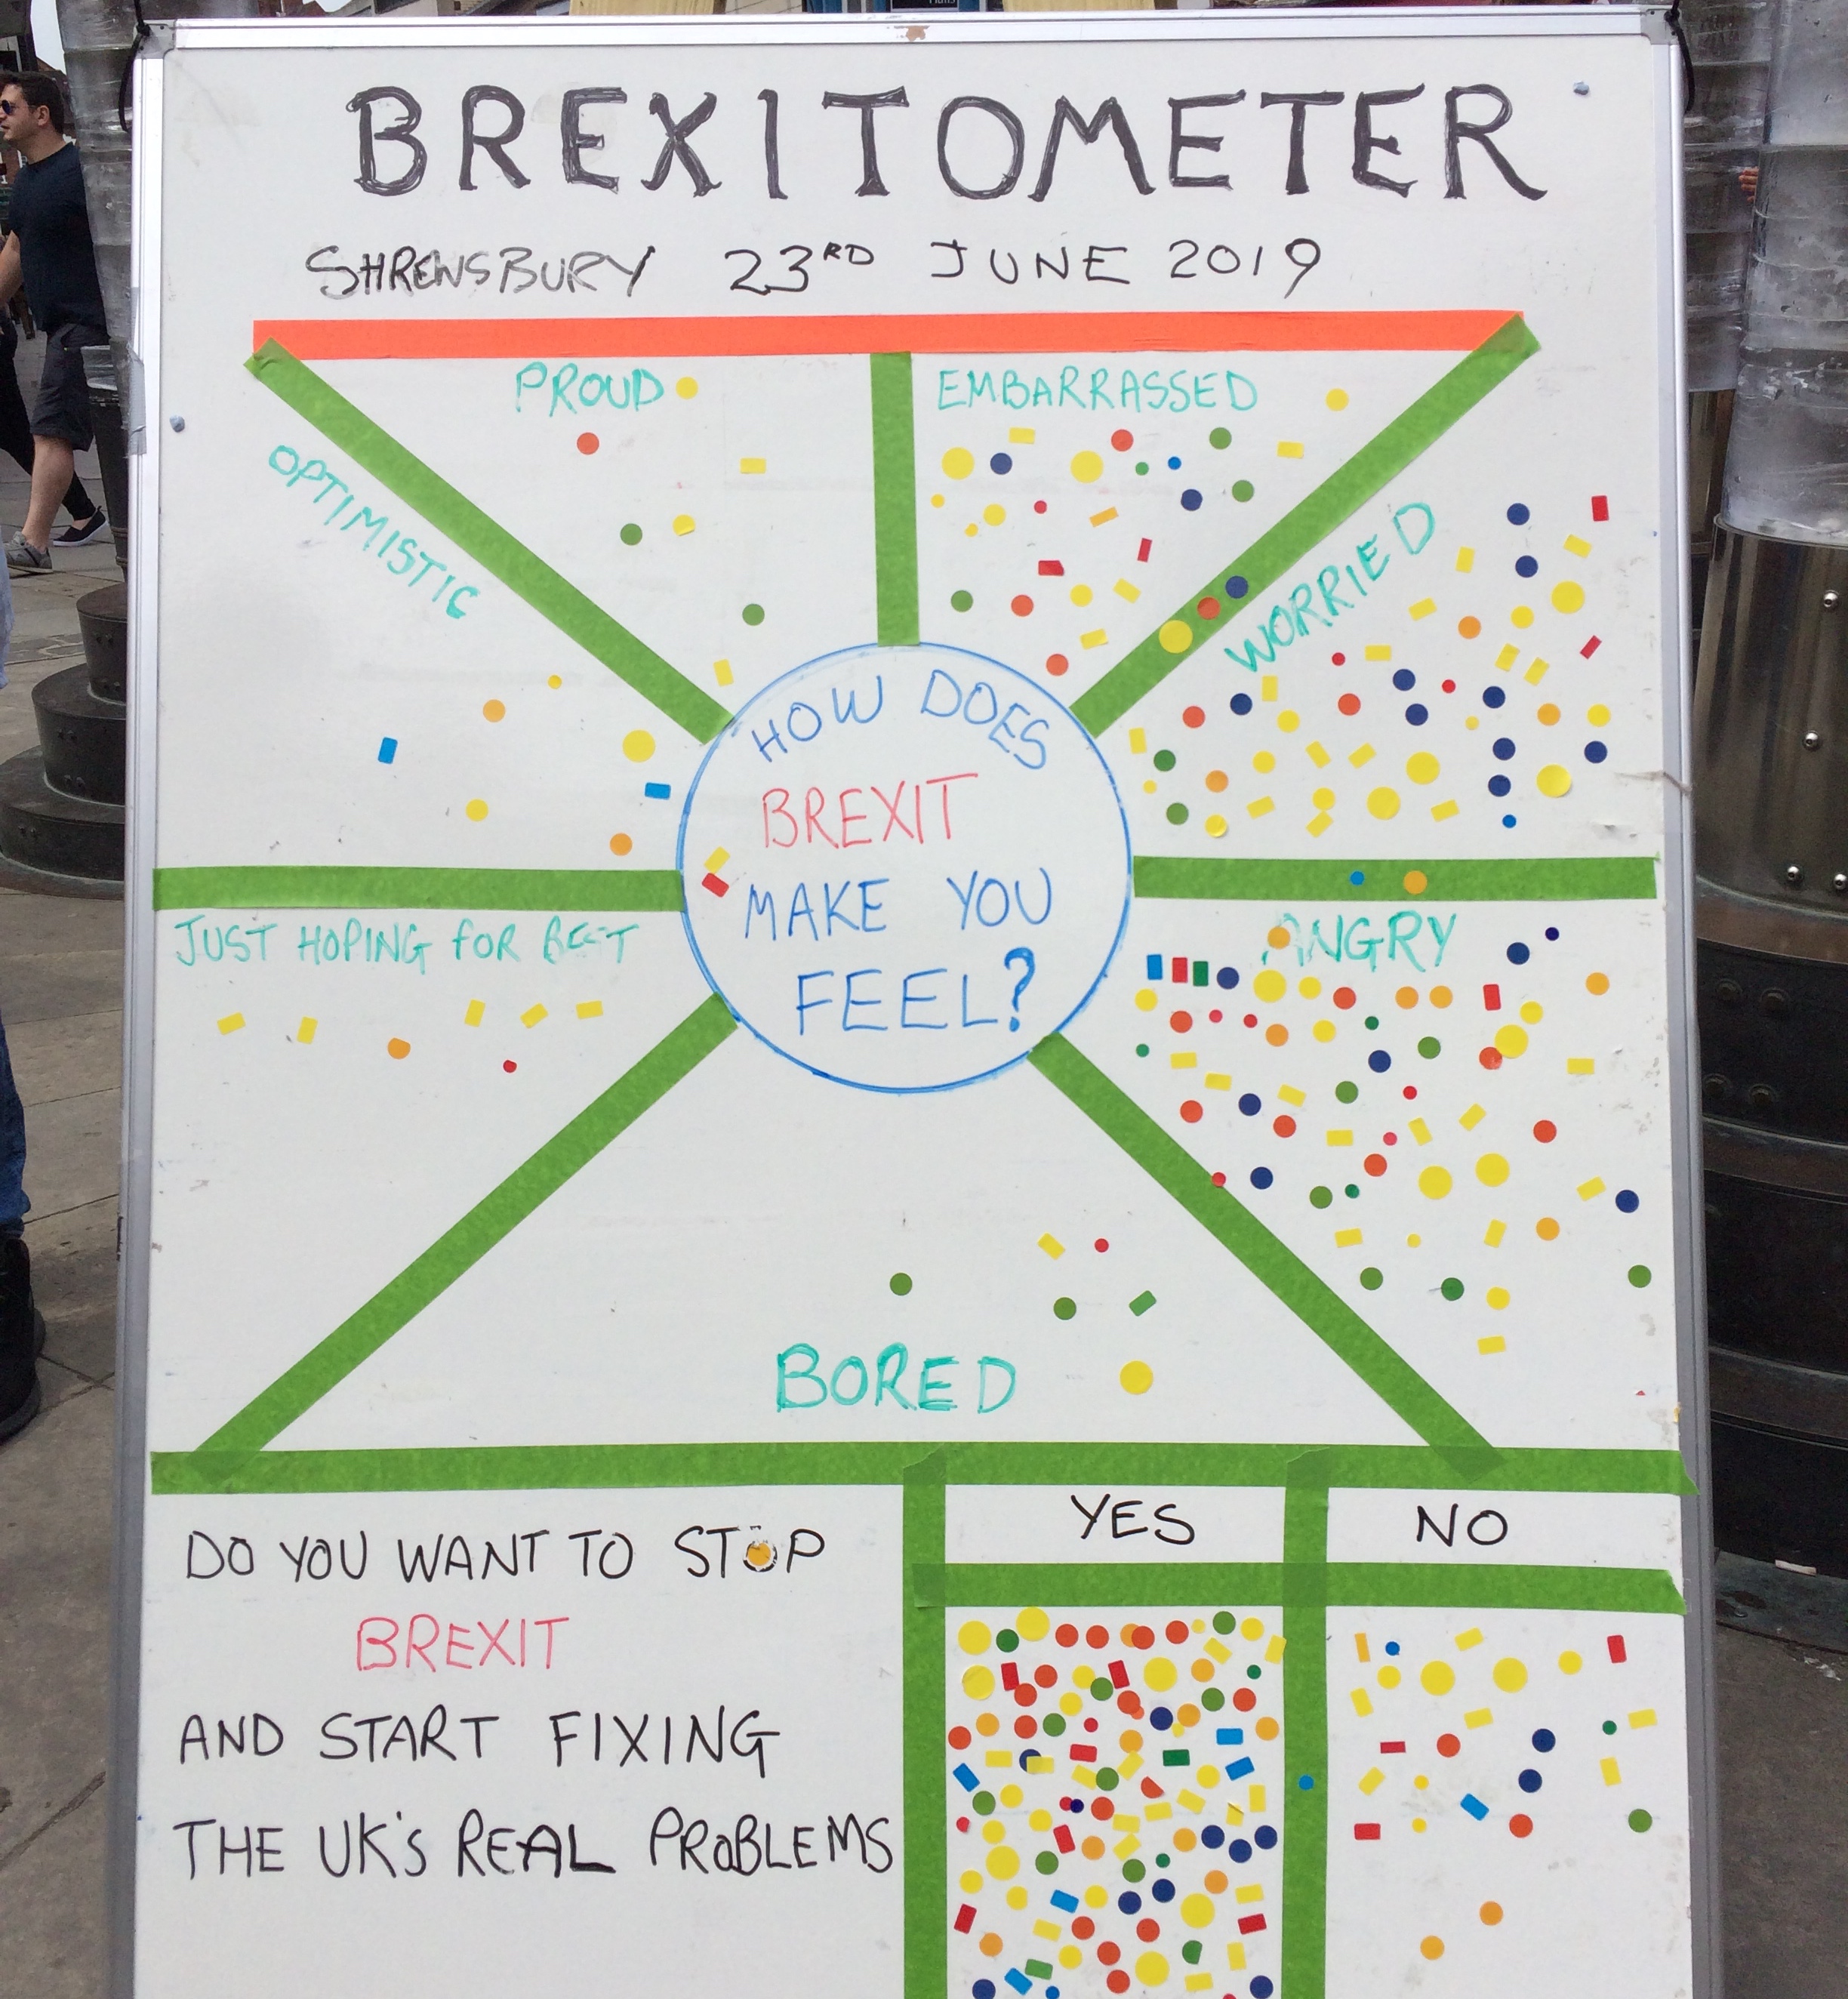 BREXITOMETER
SHREWSBURY 23RD JUNE 2019
PROUD
EMBARRASSED
OPTIMISTIC
WORRIED
HOW DOES
BREXIT
MAKE YOU
FEEL?
JUST HOPING FOR BEST
ANGRY
BORED
YES
NO
DO YOU WANT TO STOP
BREXIT
AND START FIXING
THE UK'S REAL PROBLEMS